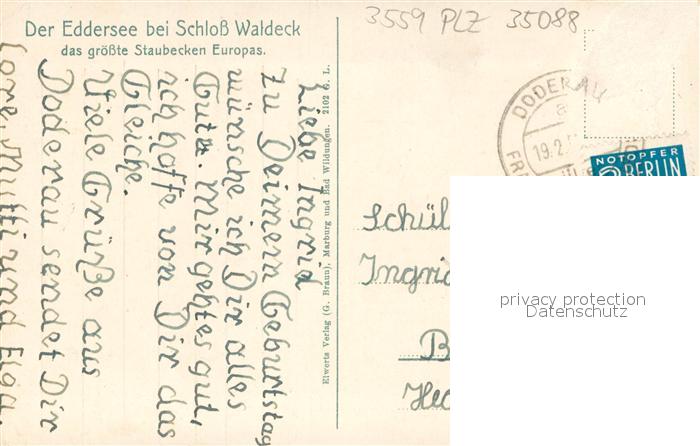 Der Eddersee bei Schloß Waldeck
das größte Staubecken Europas.
3559 PLZ 35088
DODENAU
19.2.
NOTOPFER
2 BERLIN
Liebe Ingrid
zu Deinem Geburtstag
wünsche ich Dir alles
Gute. Mir geht es gut,
ich hoffe von Dir das
Gleiche.
Viele Grüße aus
Dodenau sendet Dir
Lore, Mutti und Elga.
Elwerts Verlag (G. Braun), Marburg und Bad Wildungen. 2102 G. L.
Schül
Ingrid
B
He
privacy protection
Datenschutz